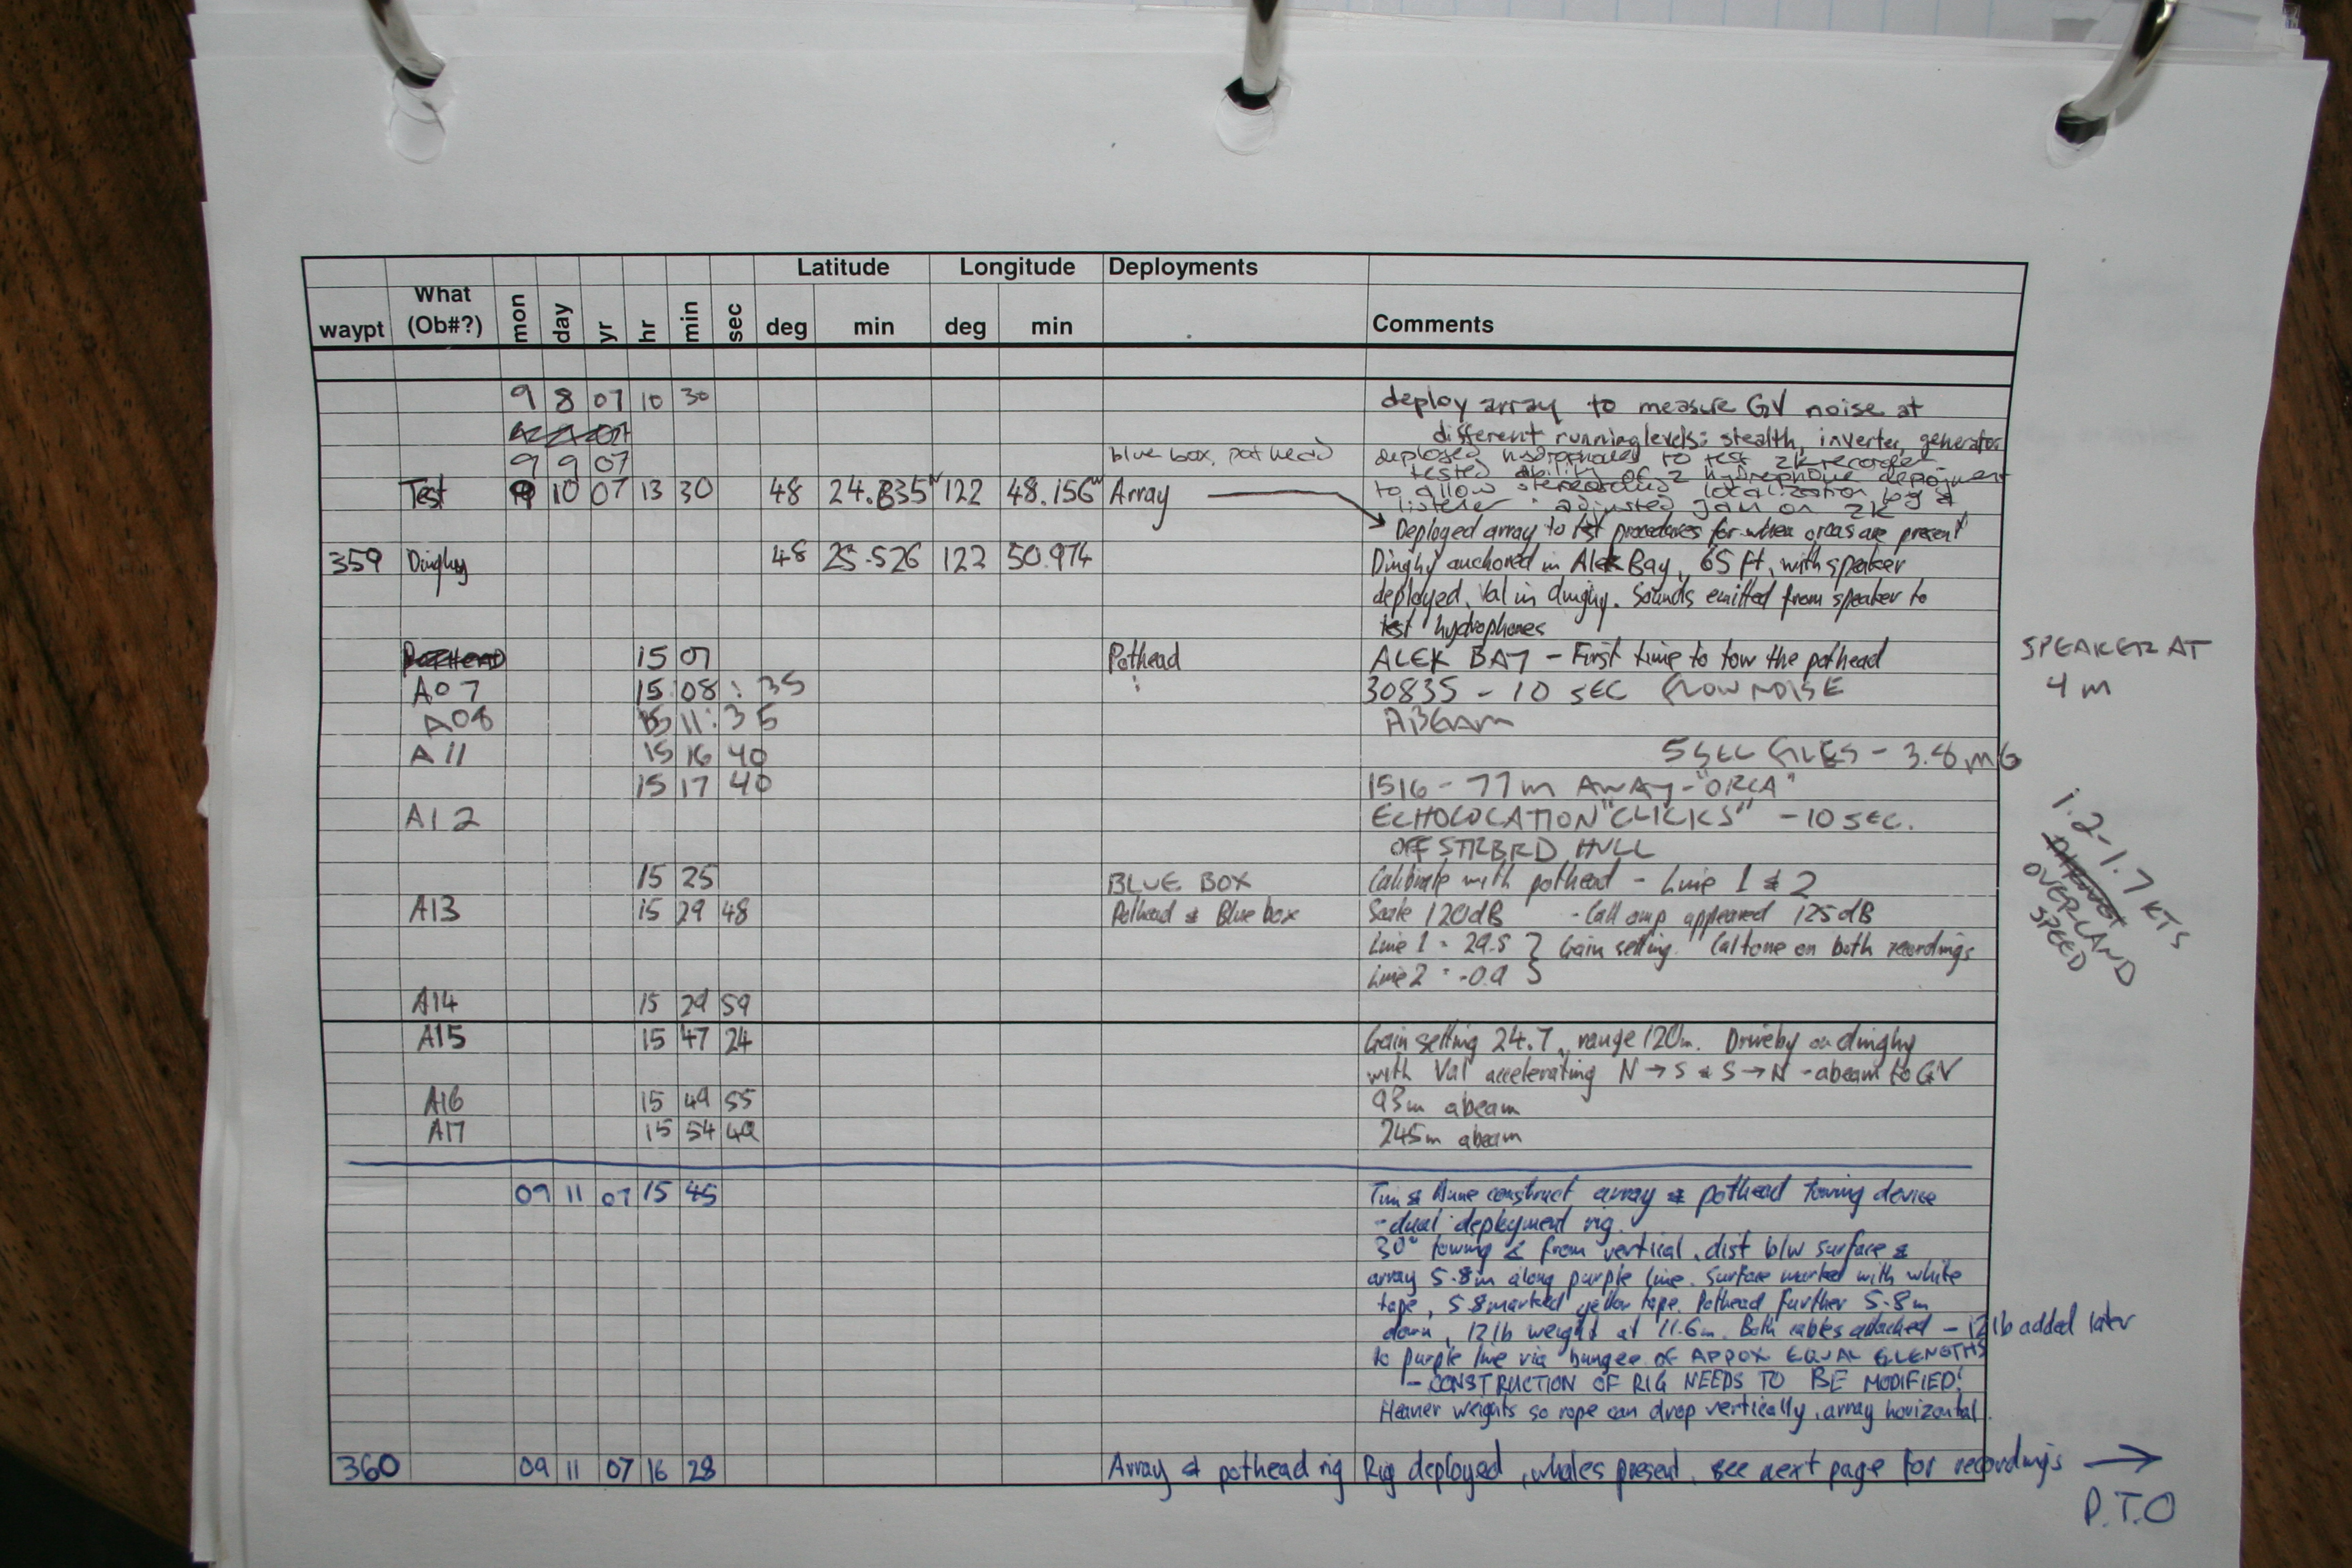 Latitude Longitude Deployments
waypt What (Ob#?) mon day yr hr min sec deg min deg min Comments
9 8 07 10 30 deploy array to measure GV noise at
different running levels: stealth, inverter, generator
9 9 07 blue box, pothead deployed hydrophones to test 2k recorder
tested ability of 2 hydrophone deployment
Test 9 10 07 13 30 48 24.835 122 48.156 Array to allow localization by a
listener adjusted gain on 2k
Deployed array to test procedures for when orcas are present
359 Dinghy 48 25.526 122 50.974 Dinghy anchored in Alek Bay, 65 ft, with speaker
deployed, Val in dinghy. Sounds emitted from speaker to
test hydrophones
15 07 Pothead ALEK BAY - First time to tow the pothead
SPEAKER AT
4 m
A07 15 08 : 35 30835 - 10 SEC FLOW NOISE
A08 15 11 : 35 ABEAM
A11 15 16 40 5 SEC FILES - 3.8 MG
15 17 40 1516 - 77m AWAY - "ORCA"
A12 ECHOLOCATION "CLICKS" - 10 SEC.
OFF STRBRD HULL
1.2-1.7 KTS
OVERLAND
SPEED
15 25 BLUE BOX Calibrate with pothead - Line 1 & 2
A13 15 29 48 Pothead & Blue box Scale 120dB - Call amp appeared 125dB
Line 1 = 29.5 } Gain setting. Cal tone on both recordings
Line 2 = -0.9
A14 15 29 59
A15 15 47 24 Gain setting 24.7, range 120m. Driveby on dinghy
with Val accelerating N → S & S → N - abeam to GV
A16 15 49 55 93m abeam
A17 15 54 49 245m abeam
09 11 07 15 45 Tim & Anne construct array & pothead towing device
- dual deployment rig.
30° towing ∠ from vertical, dist b/w surface &
array 5.8m along purple line. Surface marked with white
tape, 5.8 marked yellow tape. Pothead further 5.8m
down, 12lb weight at 11.6m. Both cables attached - 12 lb added later
to purple line via bungee OF APPOX EQUAL LENGTHS
- CONSTRUCTION OF RIG NEEDS TO BE MODIFIED!
Heavier weights so rope can drop vertically, array horizontal.
360 09 11 07 16 28 Array & pothead rig Rig deployed, whales present, see next page for recordings →
P.T.O